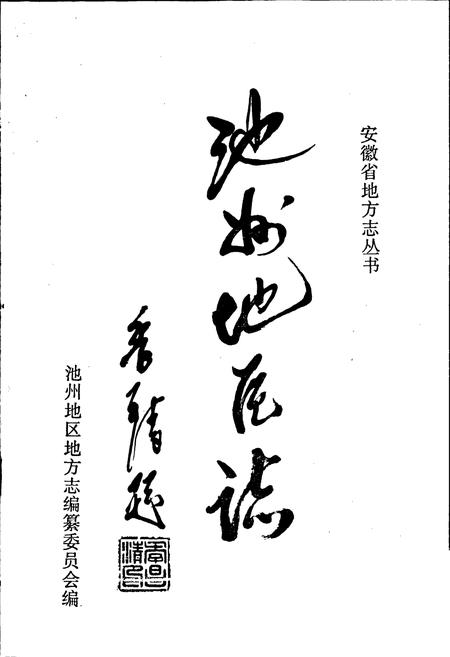 安徽省地方志丛书
池州地区誌
清题
池州地区地方志编纂委员会编